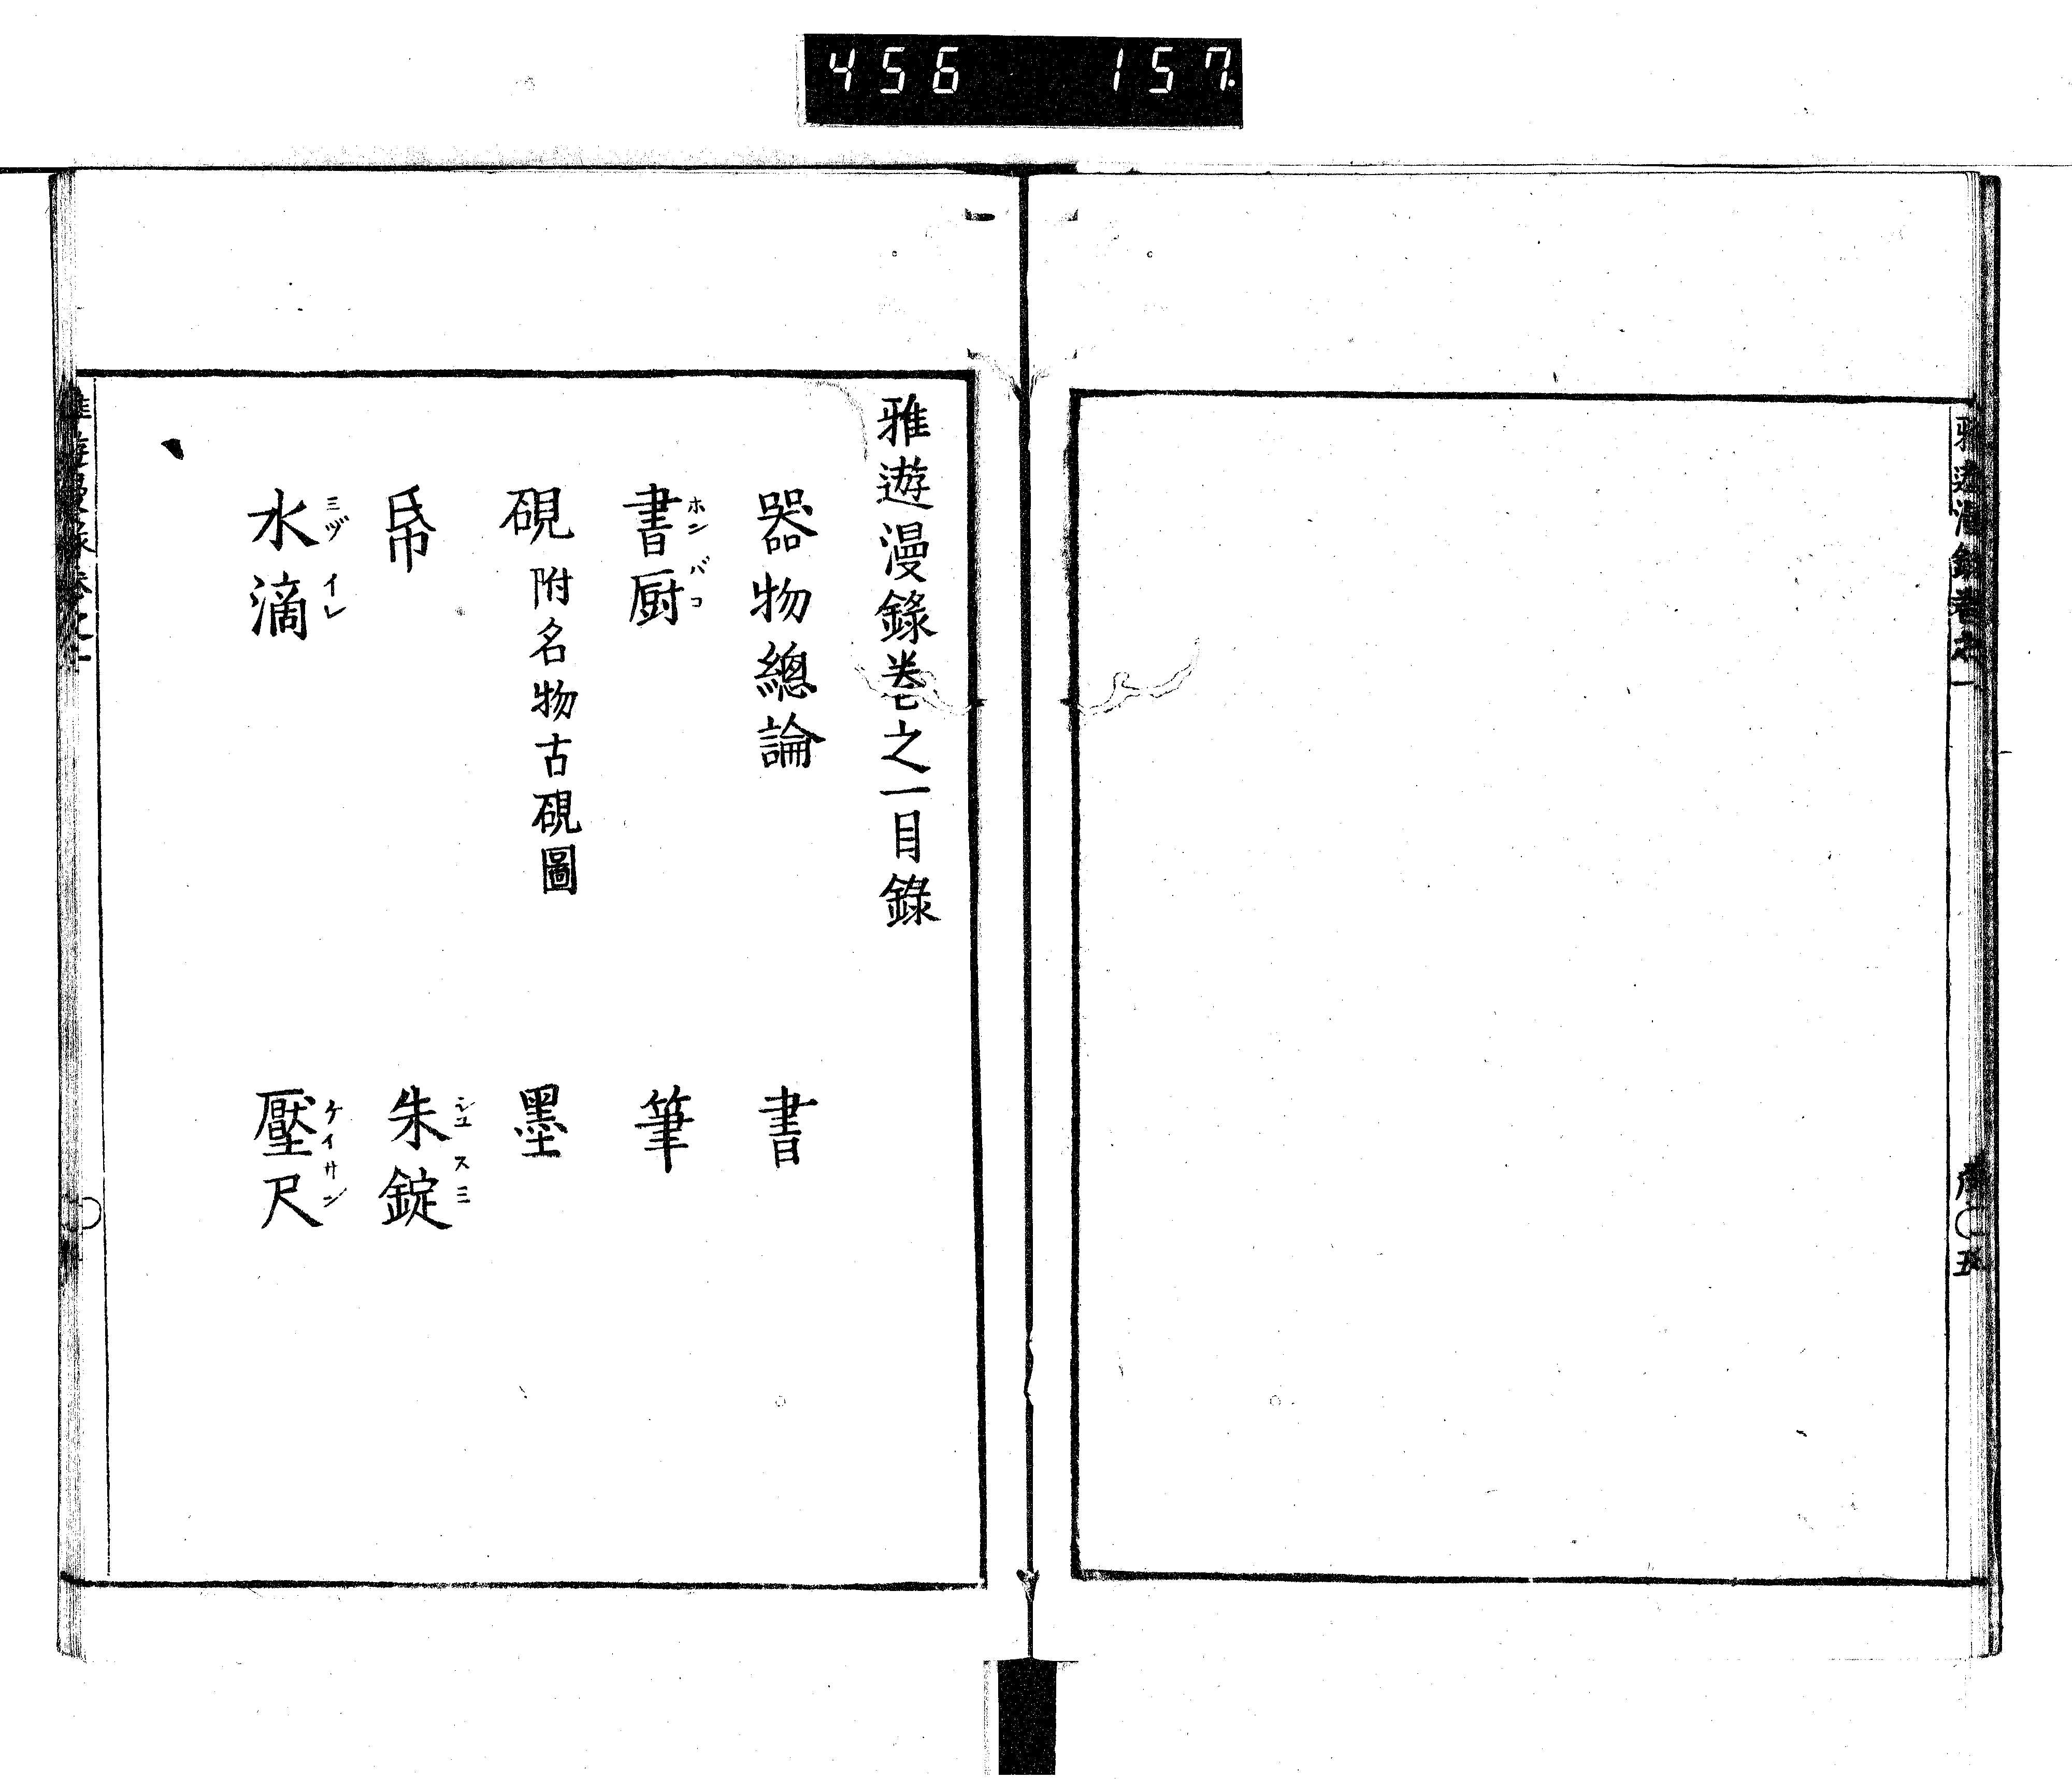 456 157
雅遊漫錄卷之一
序〇五
雅遊漫錄卷之一目錄
器物總論 書
書厨 筆
ホンバコ
硯 附名物古硯圖 墨
帋 朱錠
シユスミ
水滴 壓尺
ミヅイレ ケイサン
雅遊漫錄卷之一